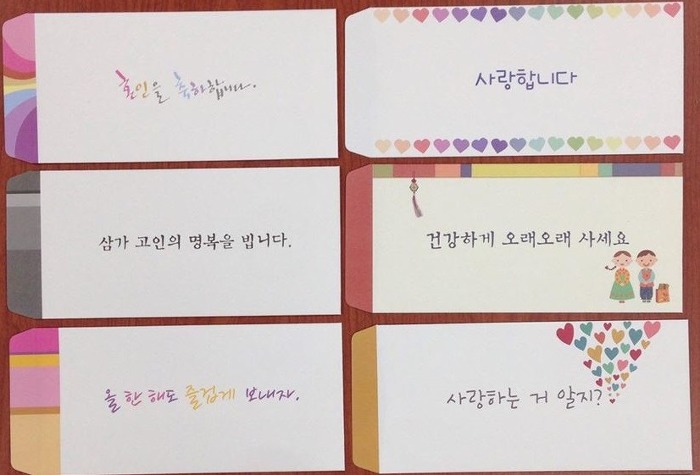 혼인을 축하합니다.
사랑합니다
삼가 고인의 명복을 빕니다.
건강하게 오래오래 사세요
올 한 해도 즐겁게 보내자.
사랑하는 거 알지?